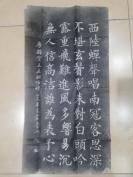 西陸蟬聲唱南冠客思深
不堪玄鬢影來對白頭吟
露重飛難進風多響易沉
無人信高潔誰為表予心